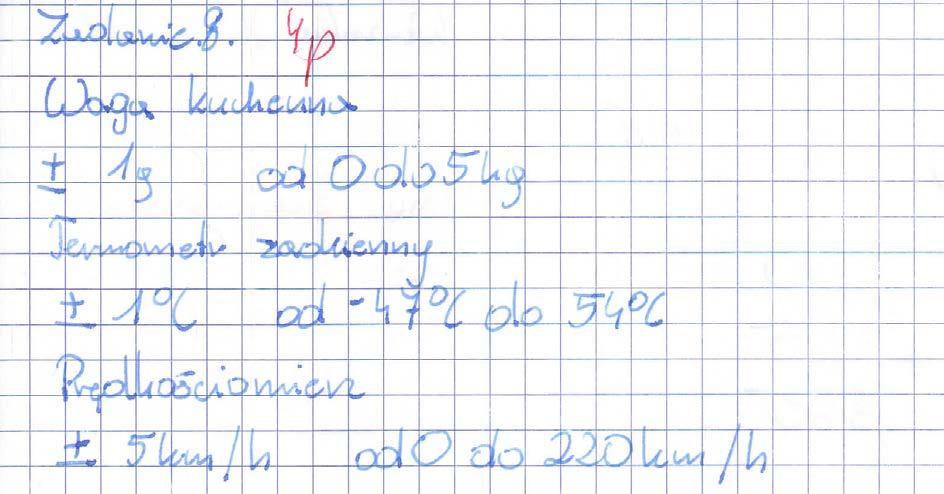 Zadanie.8. 4p
Waga kuchenna
± 1g od 0 do 5kg
Termometr zaokienny
± 1°C od -47°C do 54°C
Prędkościomierz
± 5km/h od 0 do 220km/h